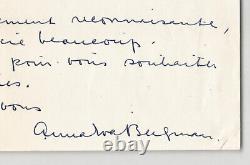 ment reconnaissante,
beaucoup.
pour vous souhaiter
es.
vous
Anna-Eva Bergman.
©humb.com